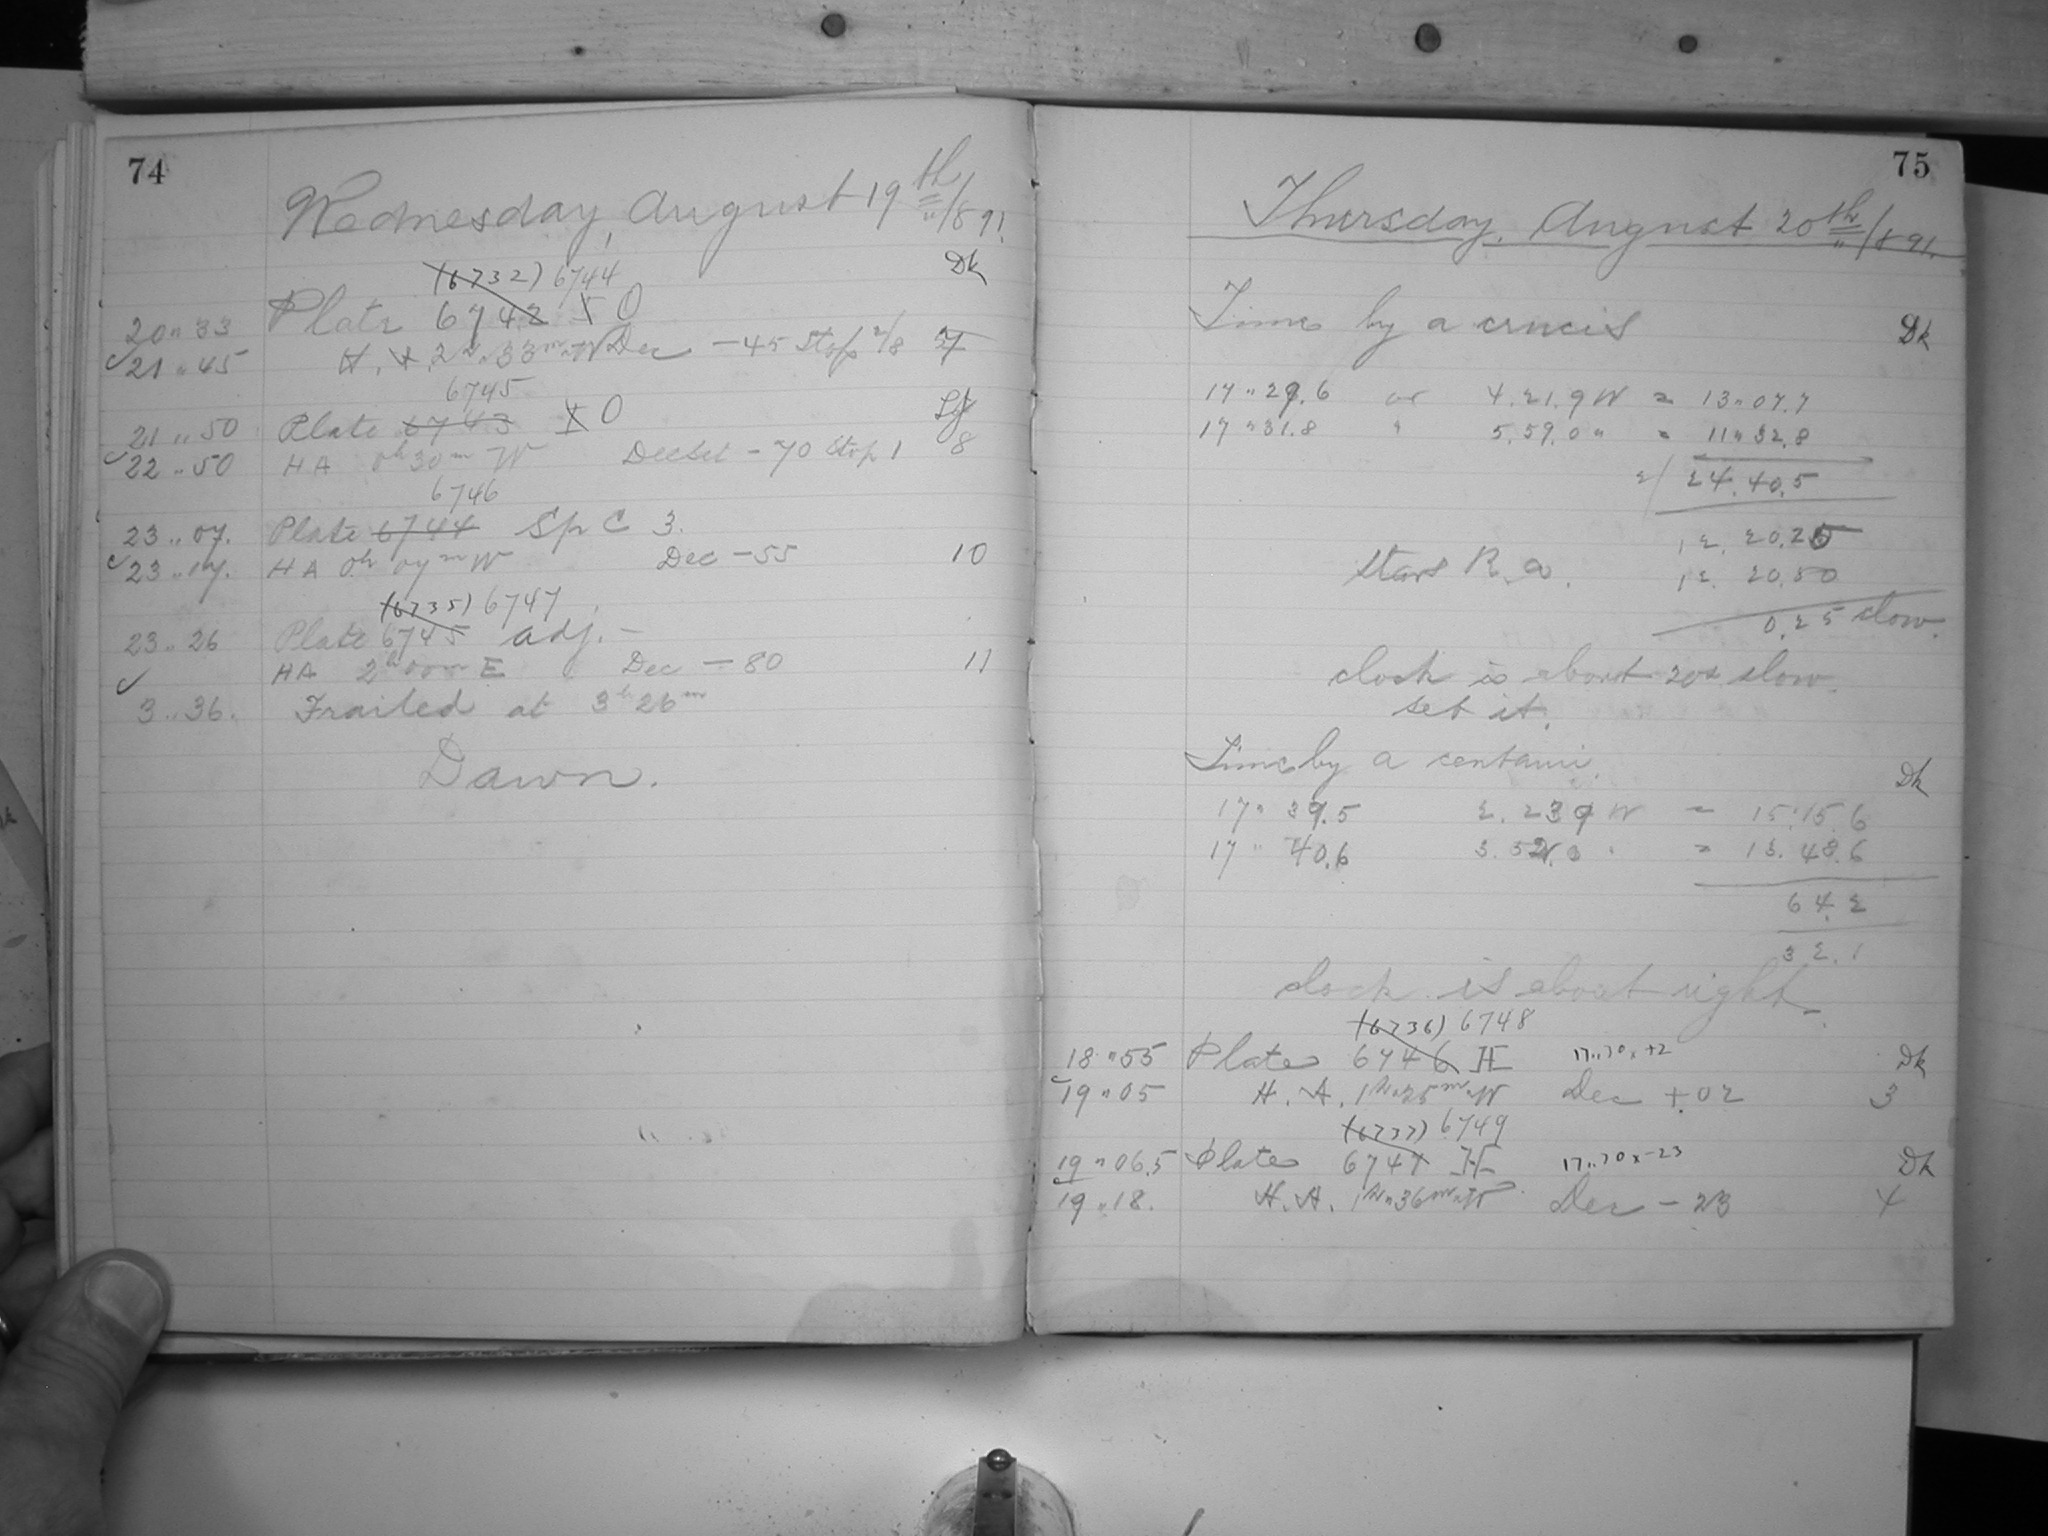 74
Wednesday, August 19th/891.
(6732) 6744 Dk
20" 33 Plate 6742 X O
21 " 45 H. A. 2h " 33m " W Dec -45 Stop 2/8 7
6745
21 " 50 Plate 6743 X O
22 " 50 HA 0h 30m W Dec Set -70 Stop 1 8
6746
23 " 07. Plate 6744 Sp C 3.
23 " 17. HA 0h 07m W Dec -55 10
(6735) 6747
23 " 26 Plate 6745 adj. -
HA 2h 00m E Dec -80 11
3 " 36. Trailed at 3h 26m
Dawn.
75
Thursday, August 20th/891.
Time by a crucis Dk
17 " 29.6 or 4.21.9 W = 13" 07.7
17 " 31.8 " 5.59.0 " = 11" 32.8
2/ 24.40.5
12. 20.25
Stars R. a. 12. 20.50
0.25 slow.
clock is about 20s slow.
set it.
Time by a centauri. Dk
17 " 39.5 2. 23 9 W = 15.15.6
17 " 40.6 = 13. 48.6
64.2
32.1
clock is about right.
(6736) 6748
18 " 55 Plate 6746 II 17..70 x +2 Dk
19 " 05 H. A. 1h " 25m " W Dec + 02 3
(6737) 6749
19 " 06.5 Plate 6747 II 17..70 x -23 Dk
19 " 18. H. A. 1h " 36m " W Dec - 23 4